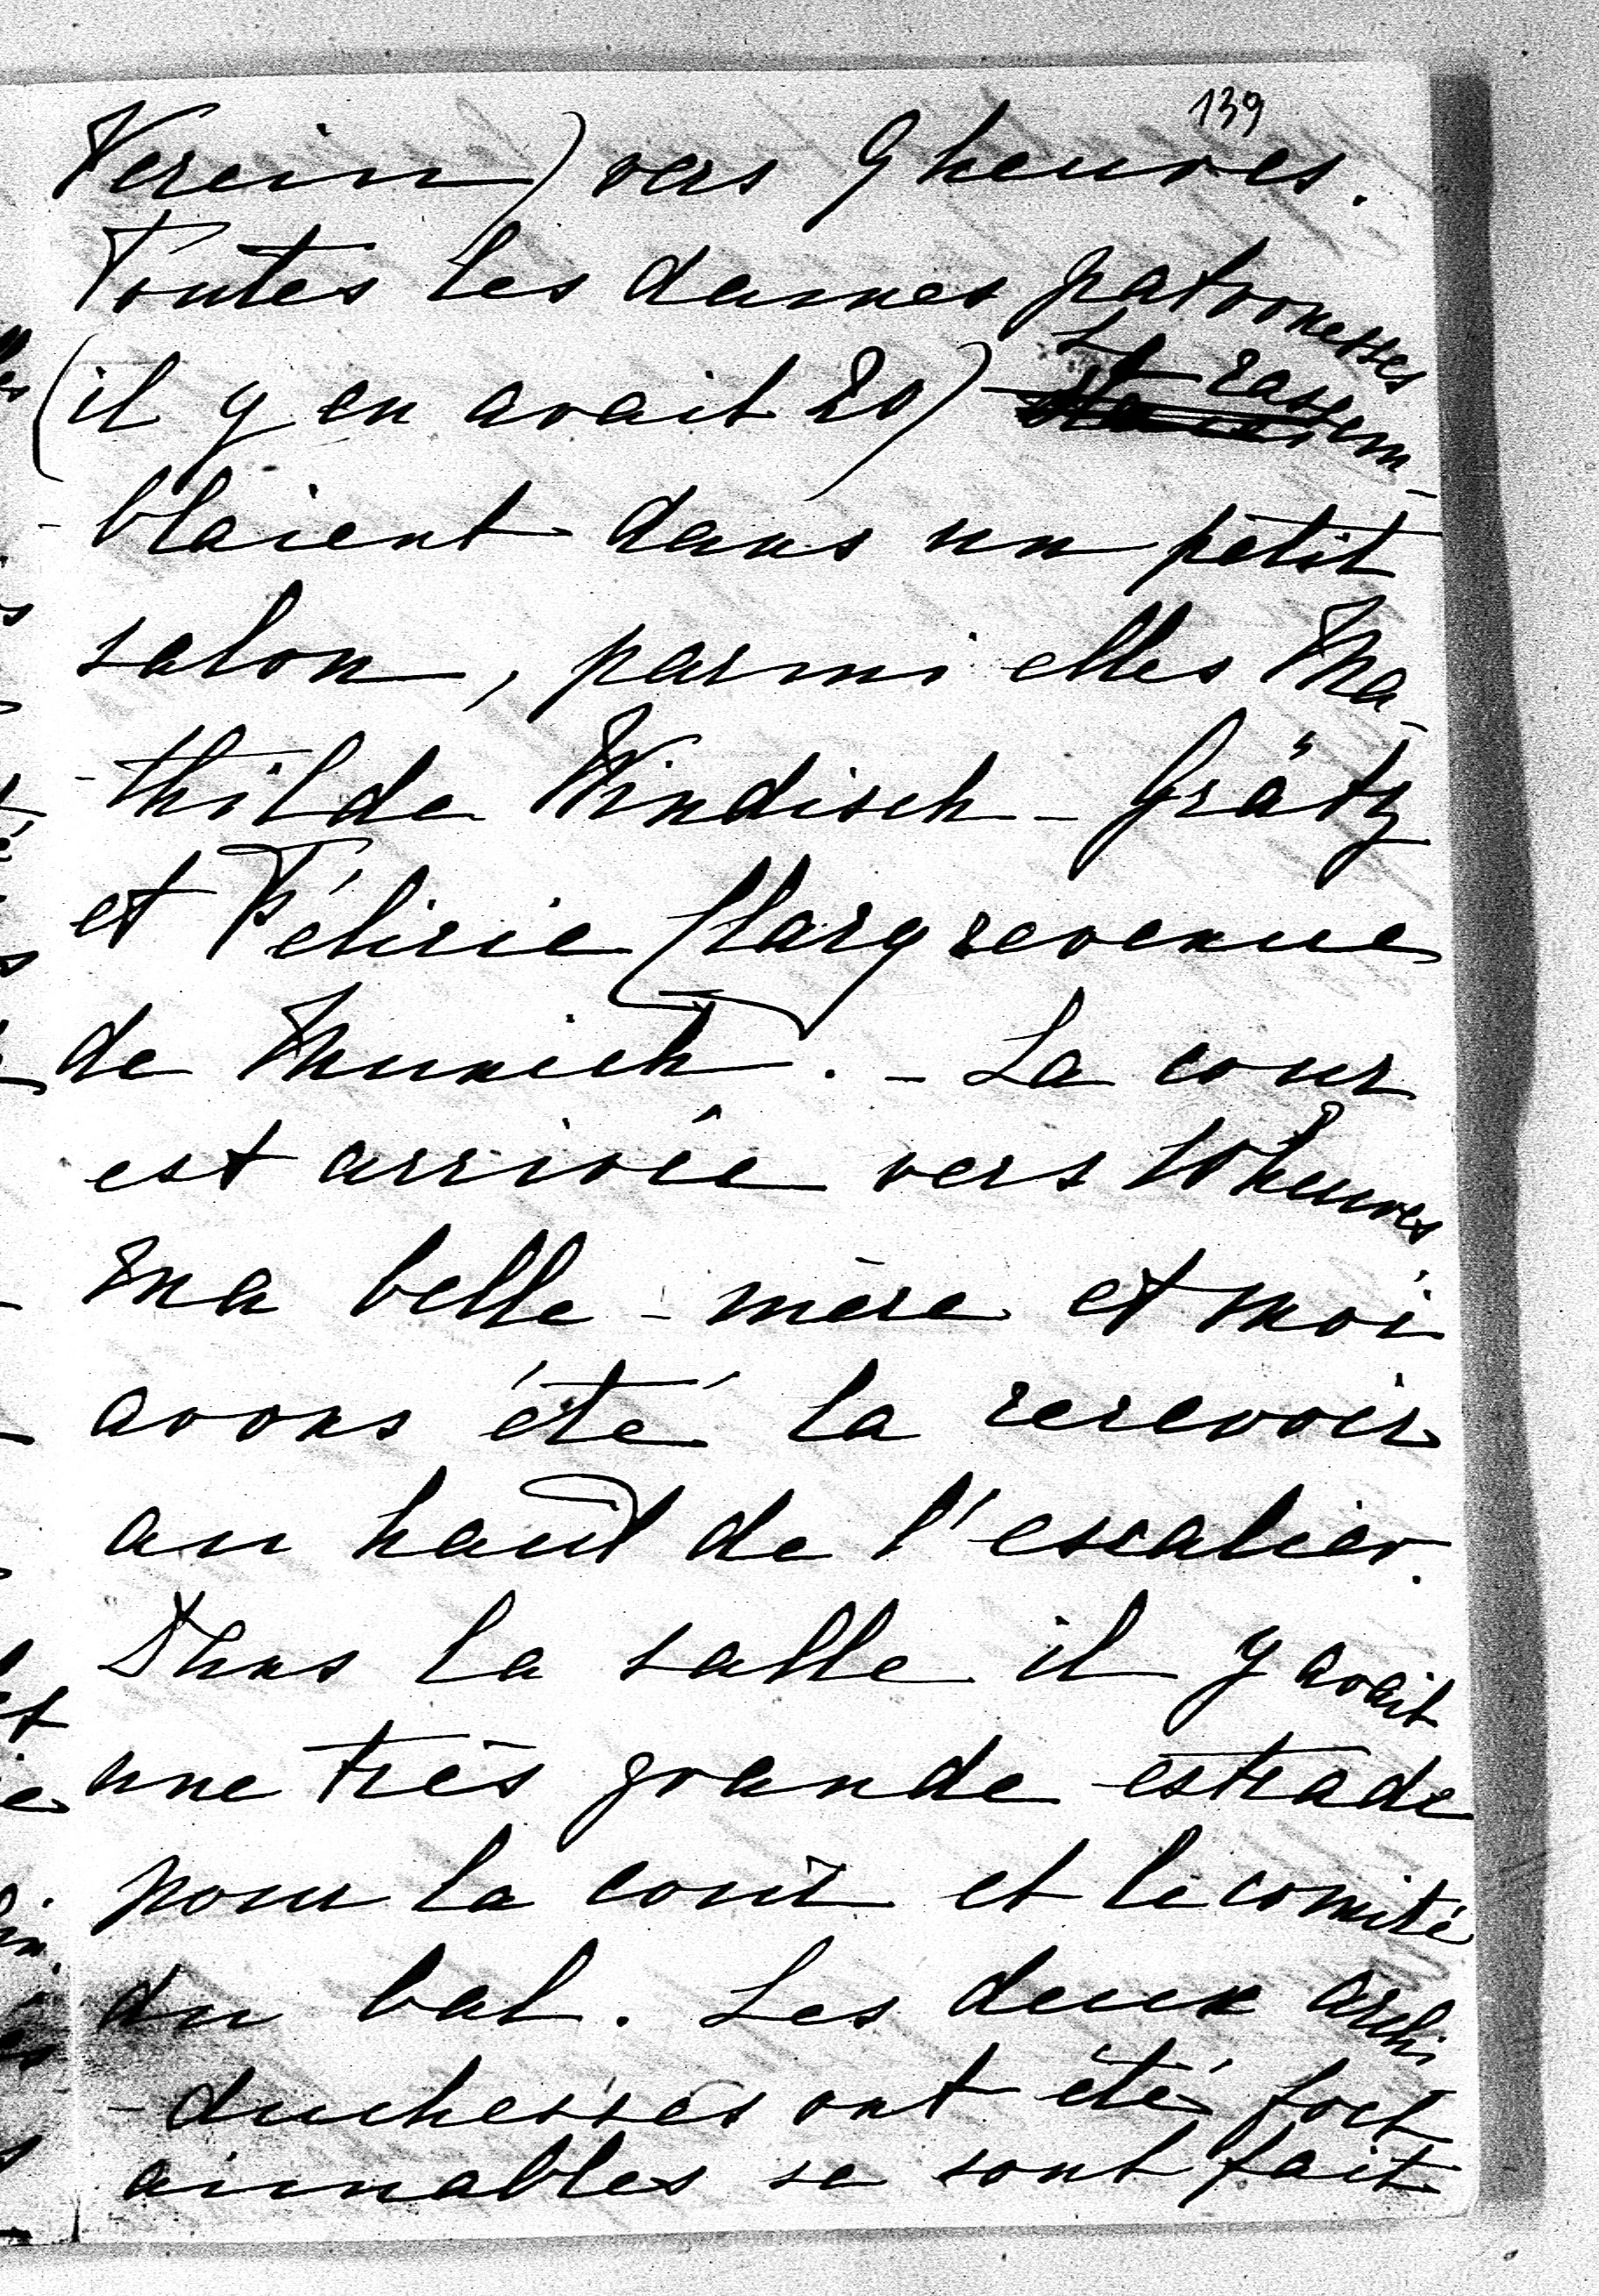 139
Verein) vers 9 heures.
Toutes les dames patronesses
(il y en avait 20) se rassem-
-blaient dans un petit
salon, parmi elles Ma-
-thilde Windisch-Grätz
et Félicie Clary revenue
de Munich. - La cour
est arrivée vers 10 heures
Ma belle-mère et moi
avons été la recevoir
au haut de l'escalier.
Dans la salle il y avait
une très grande estrade
pour la cour et le comité
du bal. Les deux archi
-duchesses ont été fort
aimables se sont fait